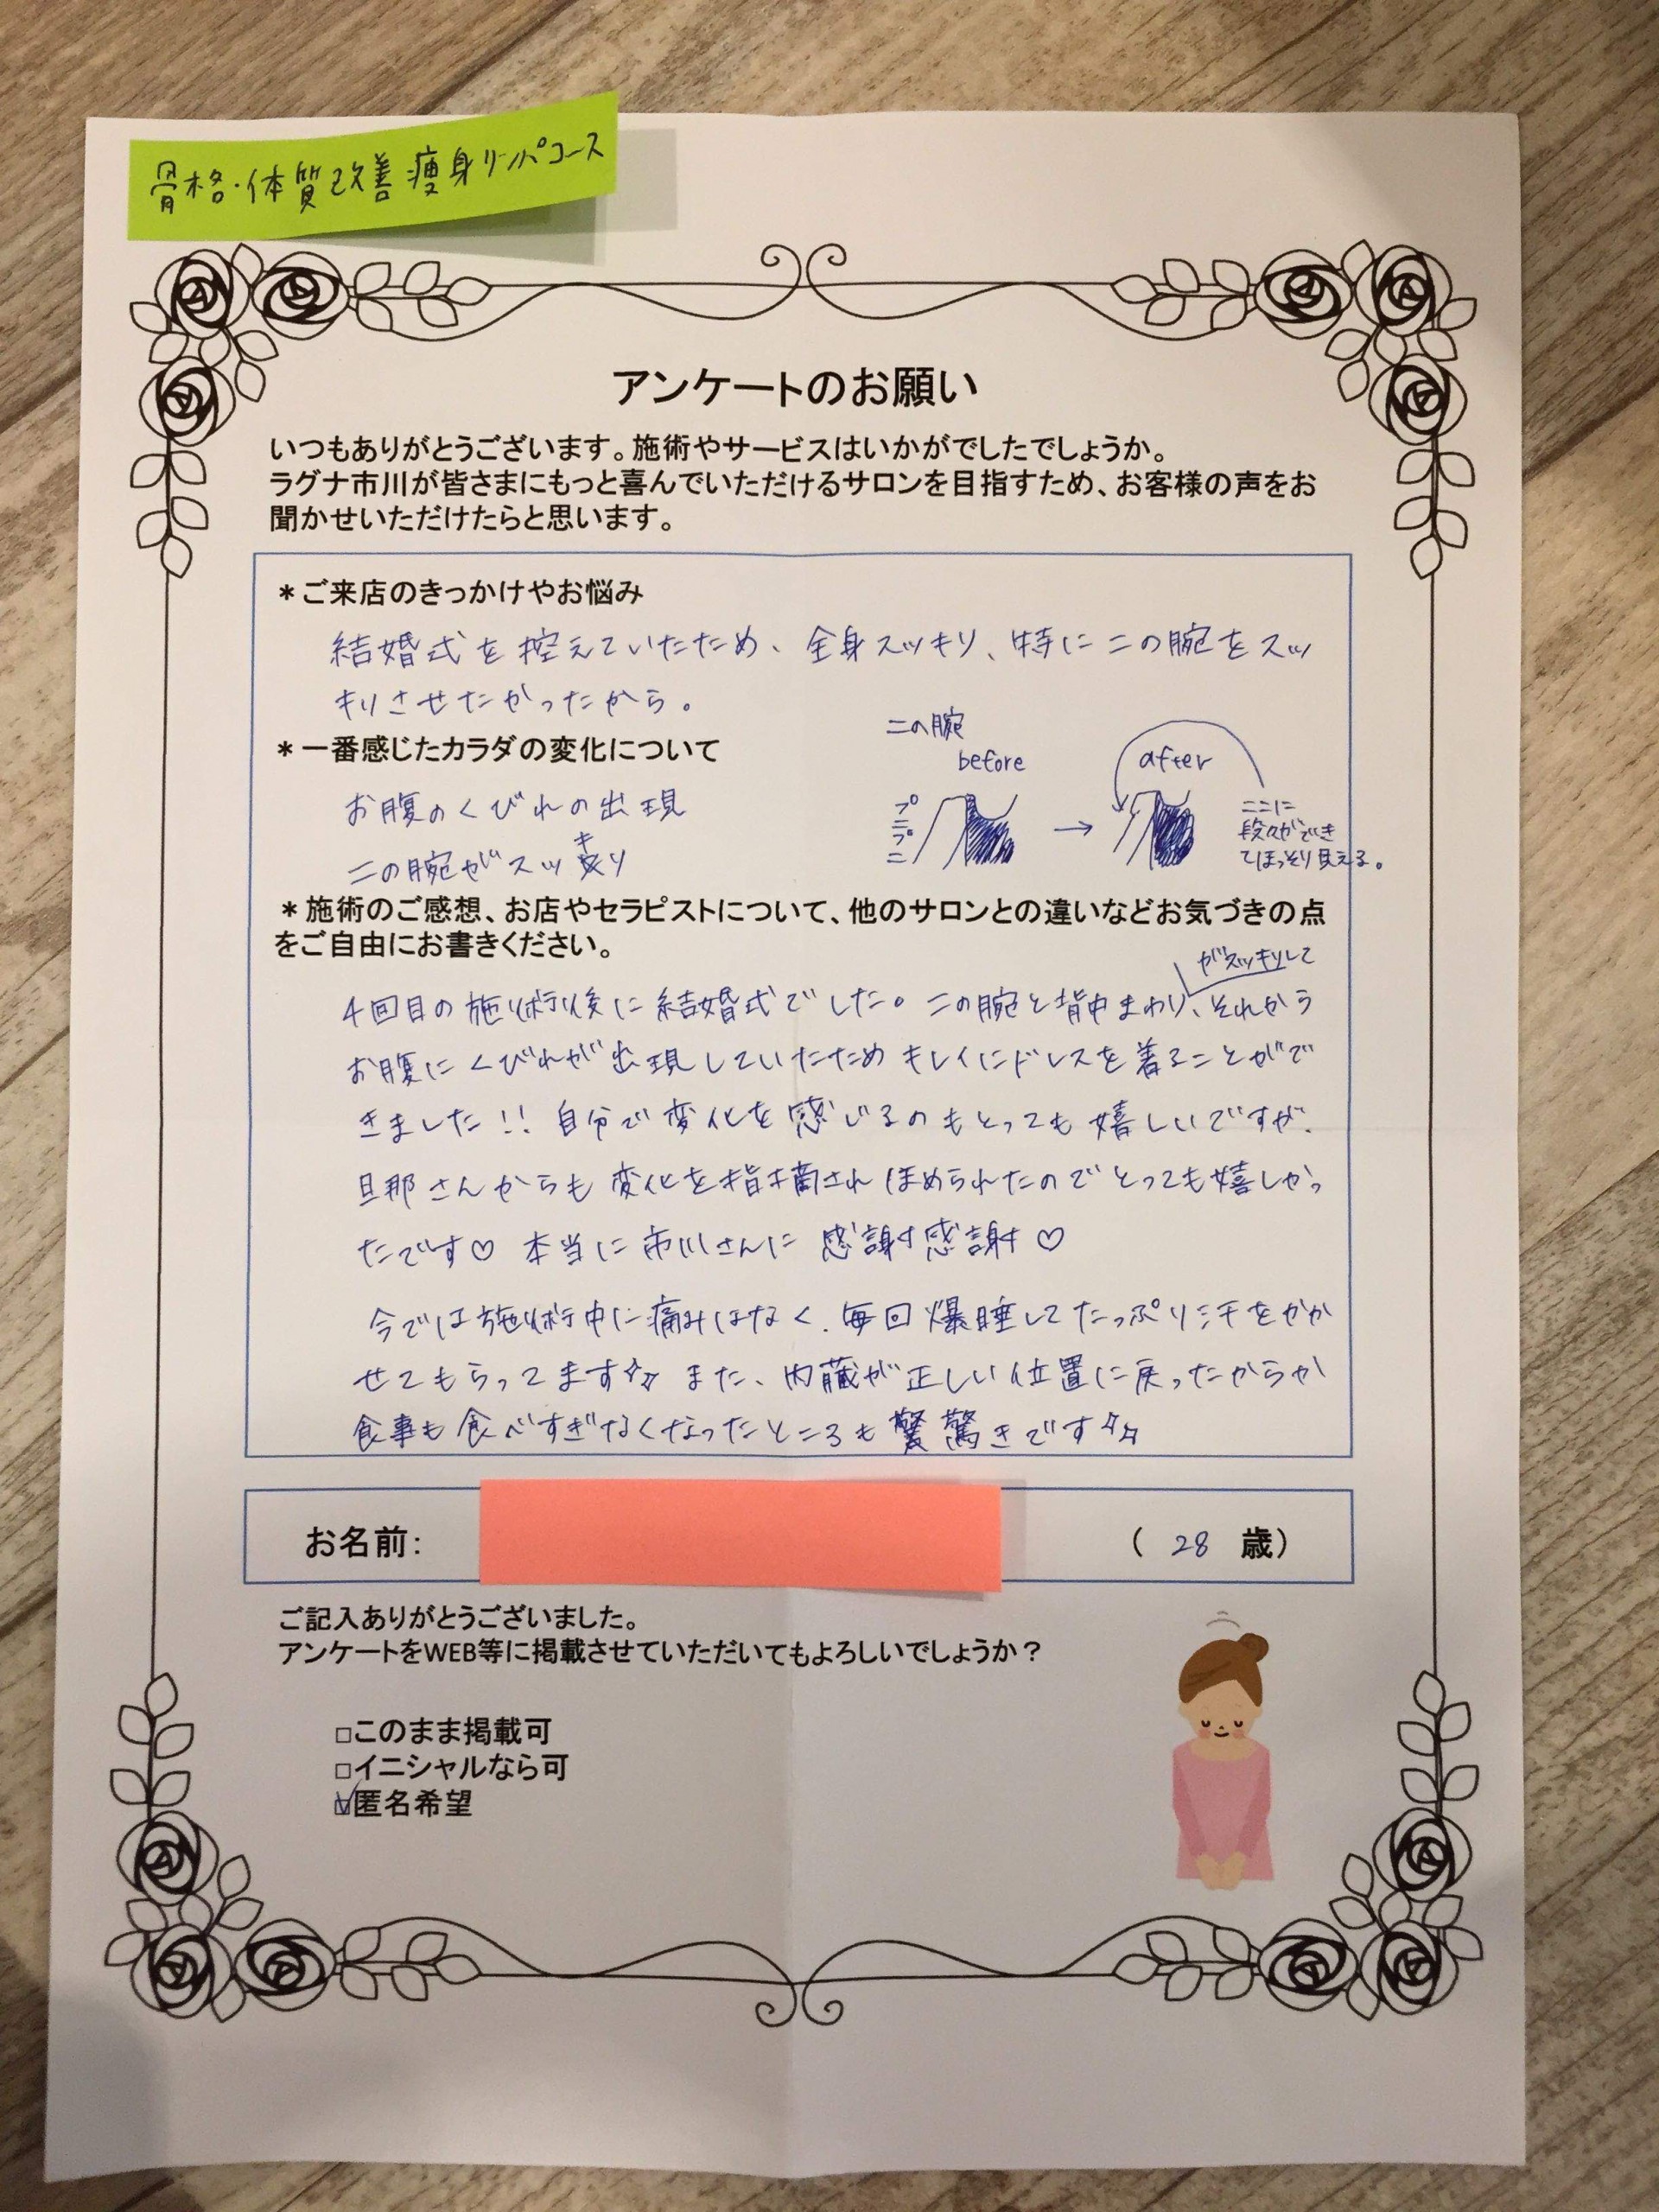 骨格・体質改善痩身リンパコース
アンケートのお願い
いつもありがとうございます。施術やサービスはいかがでしたでしょうか。
ラグナ市川が皆さまにもっと喜んでいただけるサロンを目指すため、お客様の声をお
聞かせいただけたらと思います。
＊ご来店のきっかけやお悩み
結婚式を控えていたため、全身スッキリ、特に二の腕をスッ
キリさせたかったから。
＊一番感じたカラダの変化について
お腹のくびれの出現
二の腕がスッキリ
二の腕
before
after
プニプニ
→
ここに
段々ができ
てほっそり見える。
＊施術のご感想、お店やセラピストについて、他のサロンとの違いなどお気づきの点
をご自由にお書きください。
がスッキリして
4回目の施術後に結婚式でした。二の腕と背中まわり、それから
お腹にくびれが出現していたためキレイにドレスを着ることがで
きました!! 自分で変化を感じるのもとっても嬉しいですが、
旦那さんからも変化を指摘されほめられたのでとっても嬉しかっ
たです♡ 本当に市川さんに感謝感謝♡
今では施術中に痛みはなく、毎回爆睡してたっぷり汗をかか
せてもらってます☆☆ また、内臓が正しい位置に戻ったからか
食事も食べすぎなくなったところも驚きです☆☆
お名前：
（ 28 歳）
ご記入ありがとうございました。
アンケートをWEB等に掲載させていただいてもよろしいでしょうか？
□このまま掲載可
□イニシャルなら可
☑匿名希望